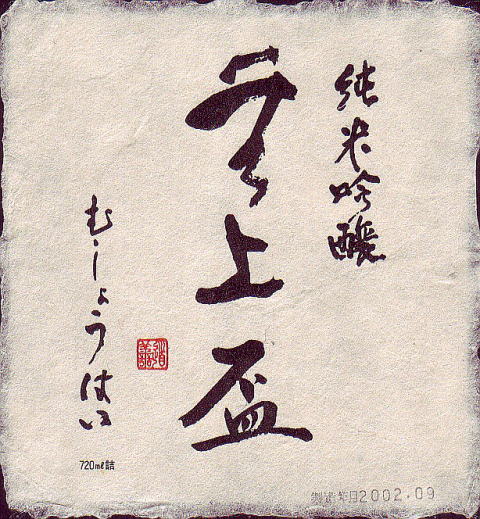 純米吟醸
无上盃
むしょうはい
720mℓ詰
製造年月2002.09